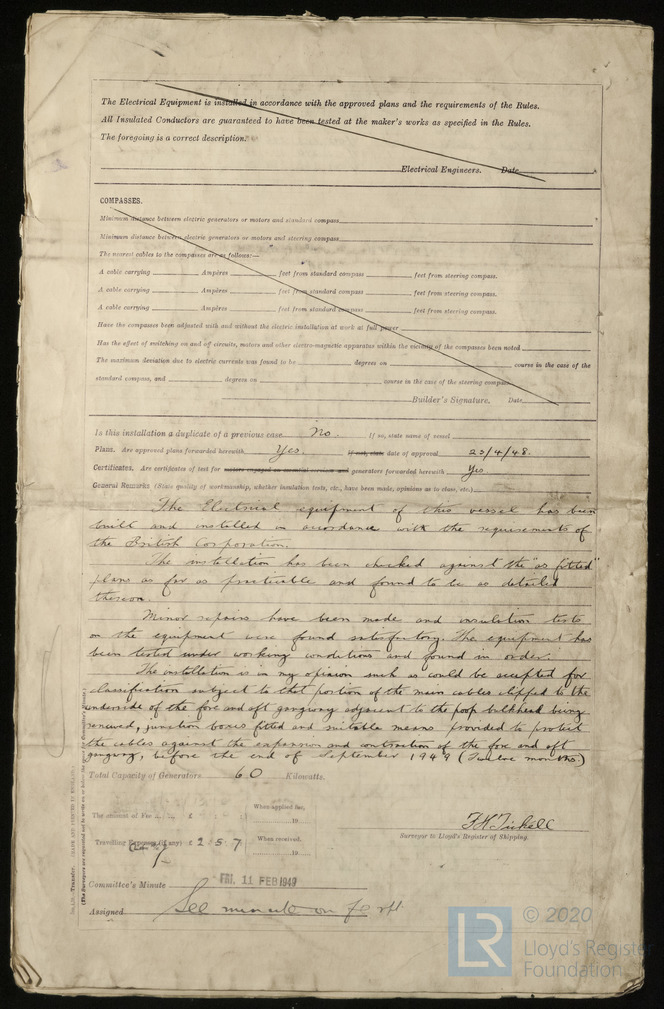 The Electrical Equipment is installed in accordance with the approved plans and the requirements of the Rules.
All Insulated Conductors are guaranteed to have been tested at the maker's works as specified in the Rules.
The foregoing is a correct description.
Electrical Engineers. Date
COMPASSES.
Minimum distance between electric generators or motors and standard compass
Minimum distance between electric generators or motors and steering compass
The nearest cables to the compasses are as follows:—
A cable carrying Ampères feet from standard compass feet from steering compass.
A cable carrying Ampères feet from standard compass feet from steering compass.
A cable carrying Ampères feet from standard compass feet from steering compass.
Have the compasses been adjusted with and without the electric installation at work at full power
Has the effect of switching on and off circuits, motors and other electro-magnetic apparatus within the vicinity of the compasses been noted
The maximum deviation due to electric currents was found to be degrees on course in the case of the
standard compass, and degrees on course in the case of the steering compass.
Builder's Signature. Date
Is this installation a duplicate of a previous case No. If so, state name of vessel
Plans. Are approved plans forwarded herewith Yes. If not, state date of approval 23/4/48.
Certificates. Are certificates of test for generators forwarded herewith Yes.
General Remarks (State quality of workmanship, whether insulation tests, etc., have been made, opinions as to class, etc.)
The Electrical equipment of this vessel has been
built and installed in accordance with the requirements of
the British Corporation.
The installation has been checked against the "as fitted"
plans as far as practicable and found to be as detailed
thereon.
Minor repairs have been made and insulation tests
on the equipment were found satisfactory. The equipment has
been tested under working conditions and found in order.
The installation is in my opinion such as could be accepted for
classification subject to that portion of the main cables clipped to the
underside of the fore and aft gangway adjacent to the poop bulkhead being
renewed, junction boxes fitted and suitable means provided to protect
the cables against the expansion and contraction of the fore and aft
gangway, before the end of September 1949 (Twelve months.)
Total Capacity of Generators 60 Kilowatts.
The amount of Fee £ : : When applied for,
19
Travelling Expenses (if any) £ 2 : 5 : 7 When received,
19
F.H. Tickell
Surveyor to Lloyd's Register of Shipping.
Committee's Minute FRI. 11 FEB 1949
Assigned See minute on
© 2020
LR
Lloyd's Register
Foundation